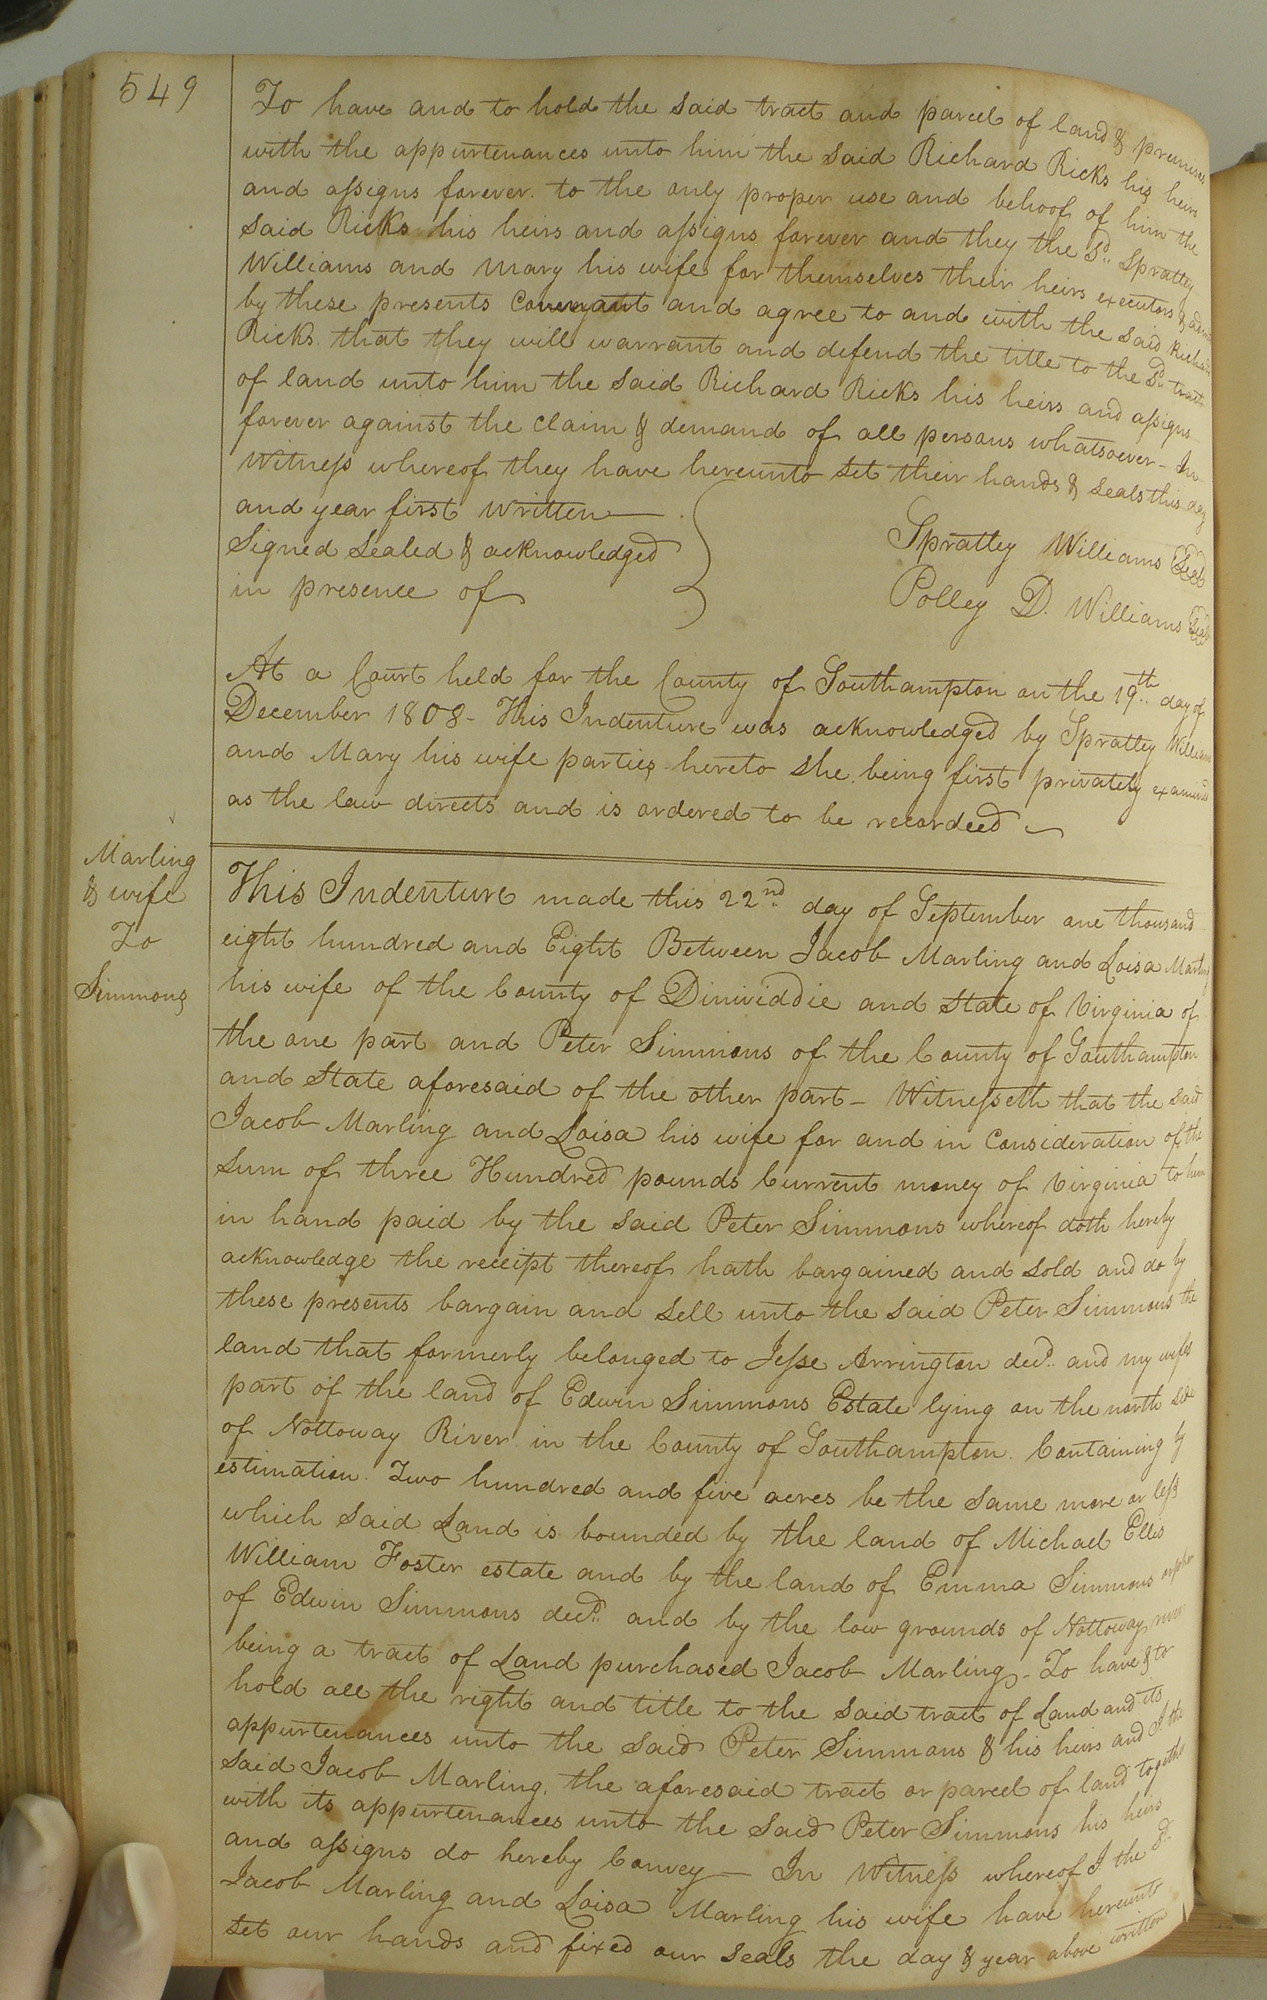 549
To have and to hold the said tract and parcel of land & premises
with the appurtenances unto him the said Richard Ricks his heirs
and assigns forever. to the only proper use and behoof of him the
said Ricks his heirs and assigns forever and they the sd. Spratley
Williams and Mary his wife for themselves their heirs executors &
by these presents Covenant and agree to and with the said Richard
Ricks that they will warrant and defend the title to the sd. tract
of land unto him the said Richard Ricks his heirs and assigns
forever against the claim & demand of all persons whatsoever - In
Witness whereof they have hereunto set their hands & seals this day
and year first written
Signed Sealed & acknowledged
in presence of
Spratley Williams Seal
Polley D. Williams Seal
At a Court held for the County of Southampton on the 19th day of
December 1808 - This Indenture was acknowledged by Spratley Williams
and Mary his wife parties hereto she being first privately examined
as the law directs and is ordered to be recordeed
Marling
& wife
To
Simmons
This Indenture made this 22nd day of September one thousand
eight hundred and Eight Between Jacob Marling and Loisa Marling
his wife of the County of Dinwiddie and State of Virginia of
the one part and Peter Simmons of the County of Southampton
and State aforesaid of the other part - Witnesseth that the said
Jacob Marling and Loisa his wife for and in Consideration of the
sum of three Hundred pounds Current money of Virginia to him
in hand paid by the said Peter Simmons whereof doth hereby
acknowledge the receipt thereof hath bargained and sold and do by
these presents bargain and sell unto the said Peter Simmons the
land that formerly belonged to Jesse Arrington decd. and my wifes
part of the land of Edwin Simmons Estate lying on the north side
of Nottoway River in the County of Southampton. Containing by
estimation. Two hundred and five acres be the same more or less
which said Land is bounded by the land of Michael Ellis
William Foster estate and by the land of Emma Simmons orphan
of Edwin Simmons decd. and by the low grounds of Nottoway river
being a tract of Land purchased Jacob Marling - To have & to
hold all the right and title to the said tract of Land and its
appurtenances unto the said Peter Simmons & his heirs and I the
said Jacob Marling. the aforesaid tract or parcel of land together
with its appurtenances unto the said Peter Simmons his heirs
and assigns do hereby Convey - In Witness whereof I the sd.
Jacob Marling and Loisa Marling his wife have hereunto
set our hands and fixed our seals the day & year above written